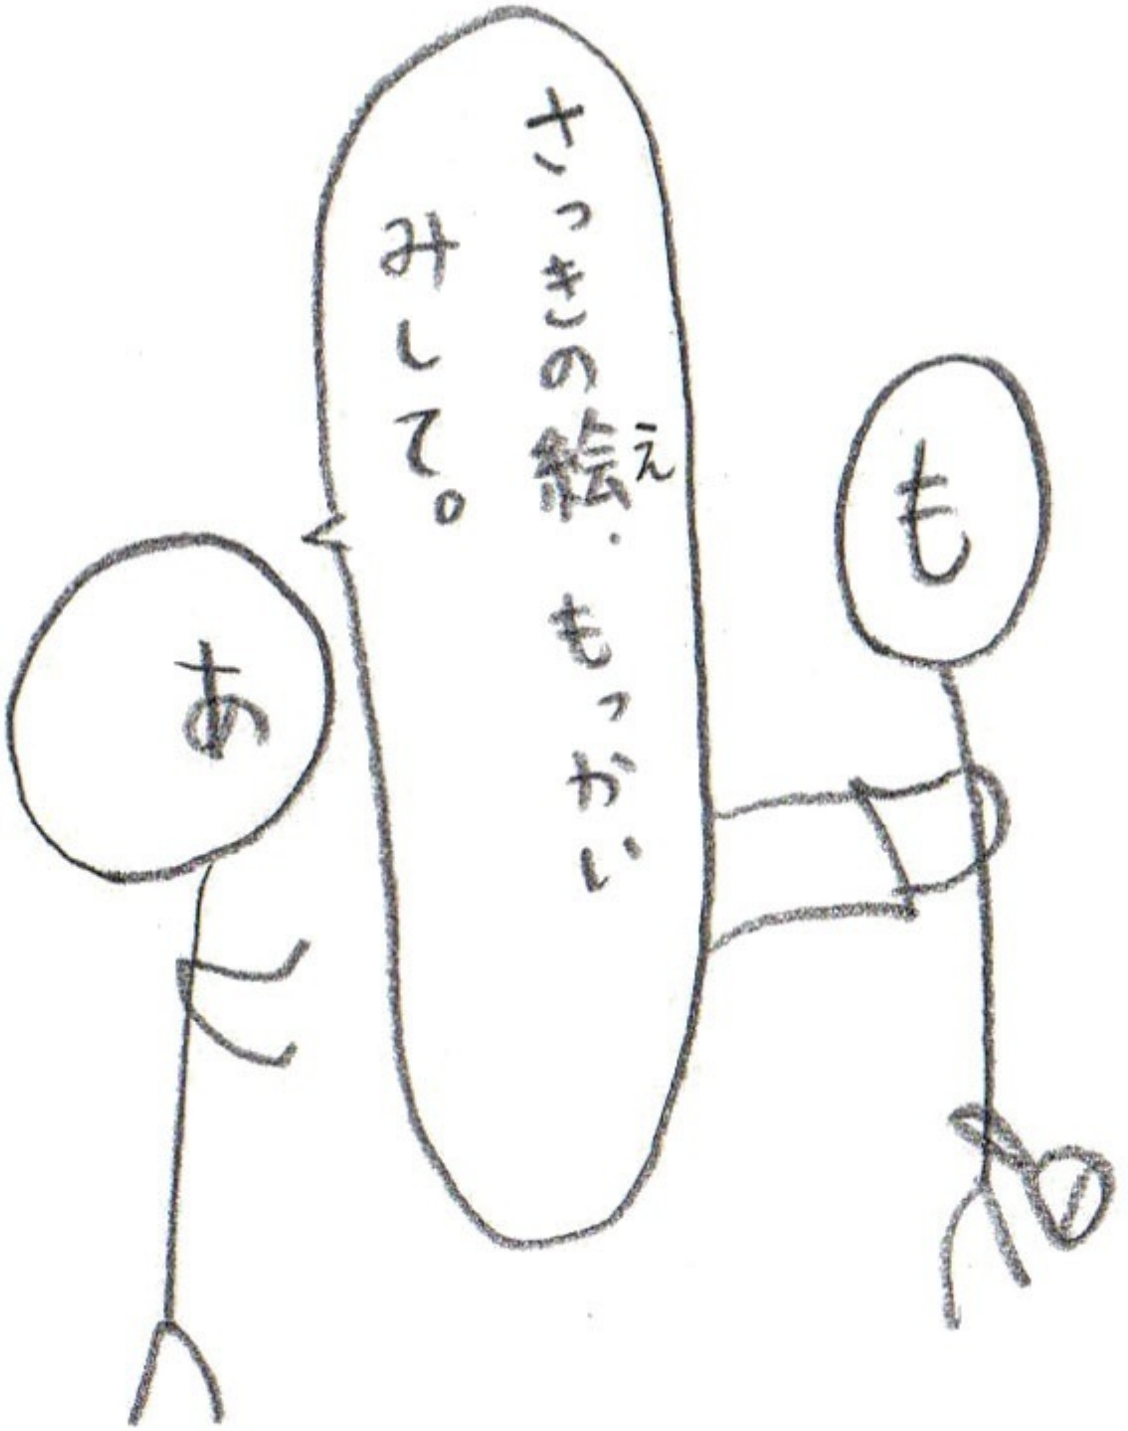 さっきの絵、もっかい
え
みして。
も
あ